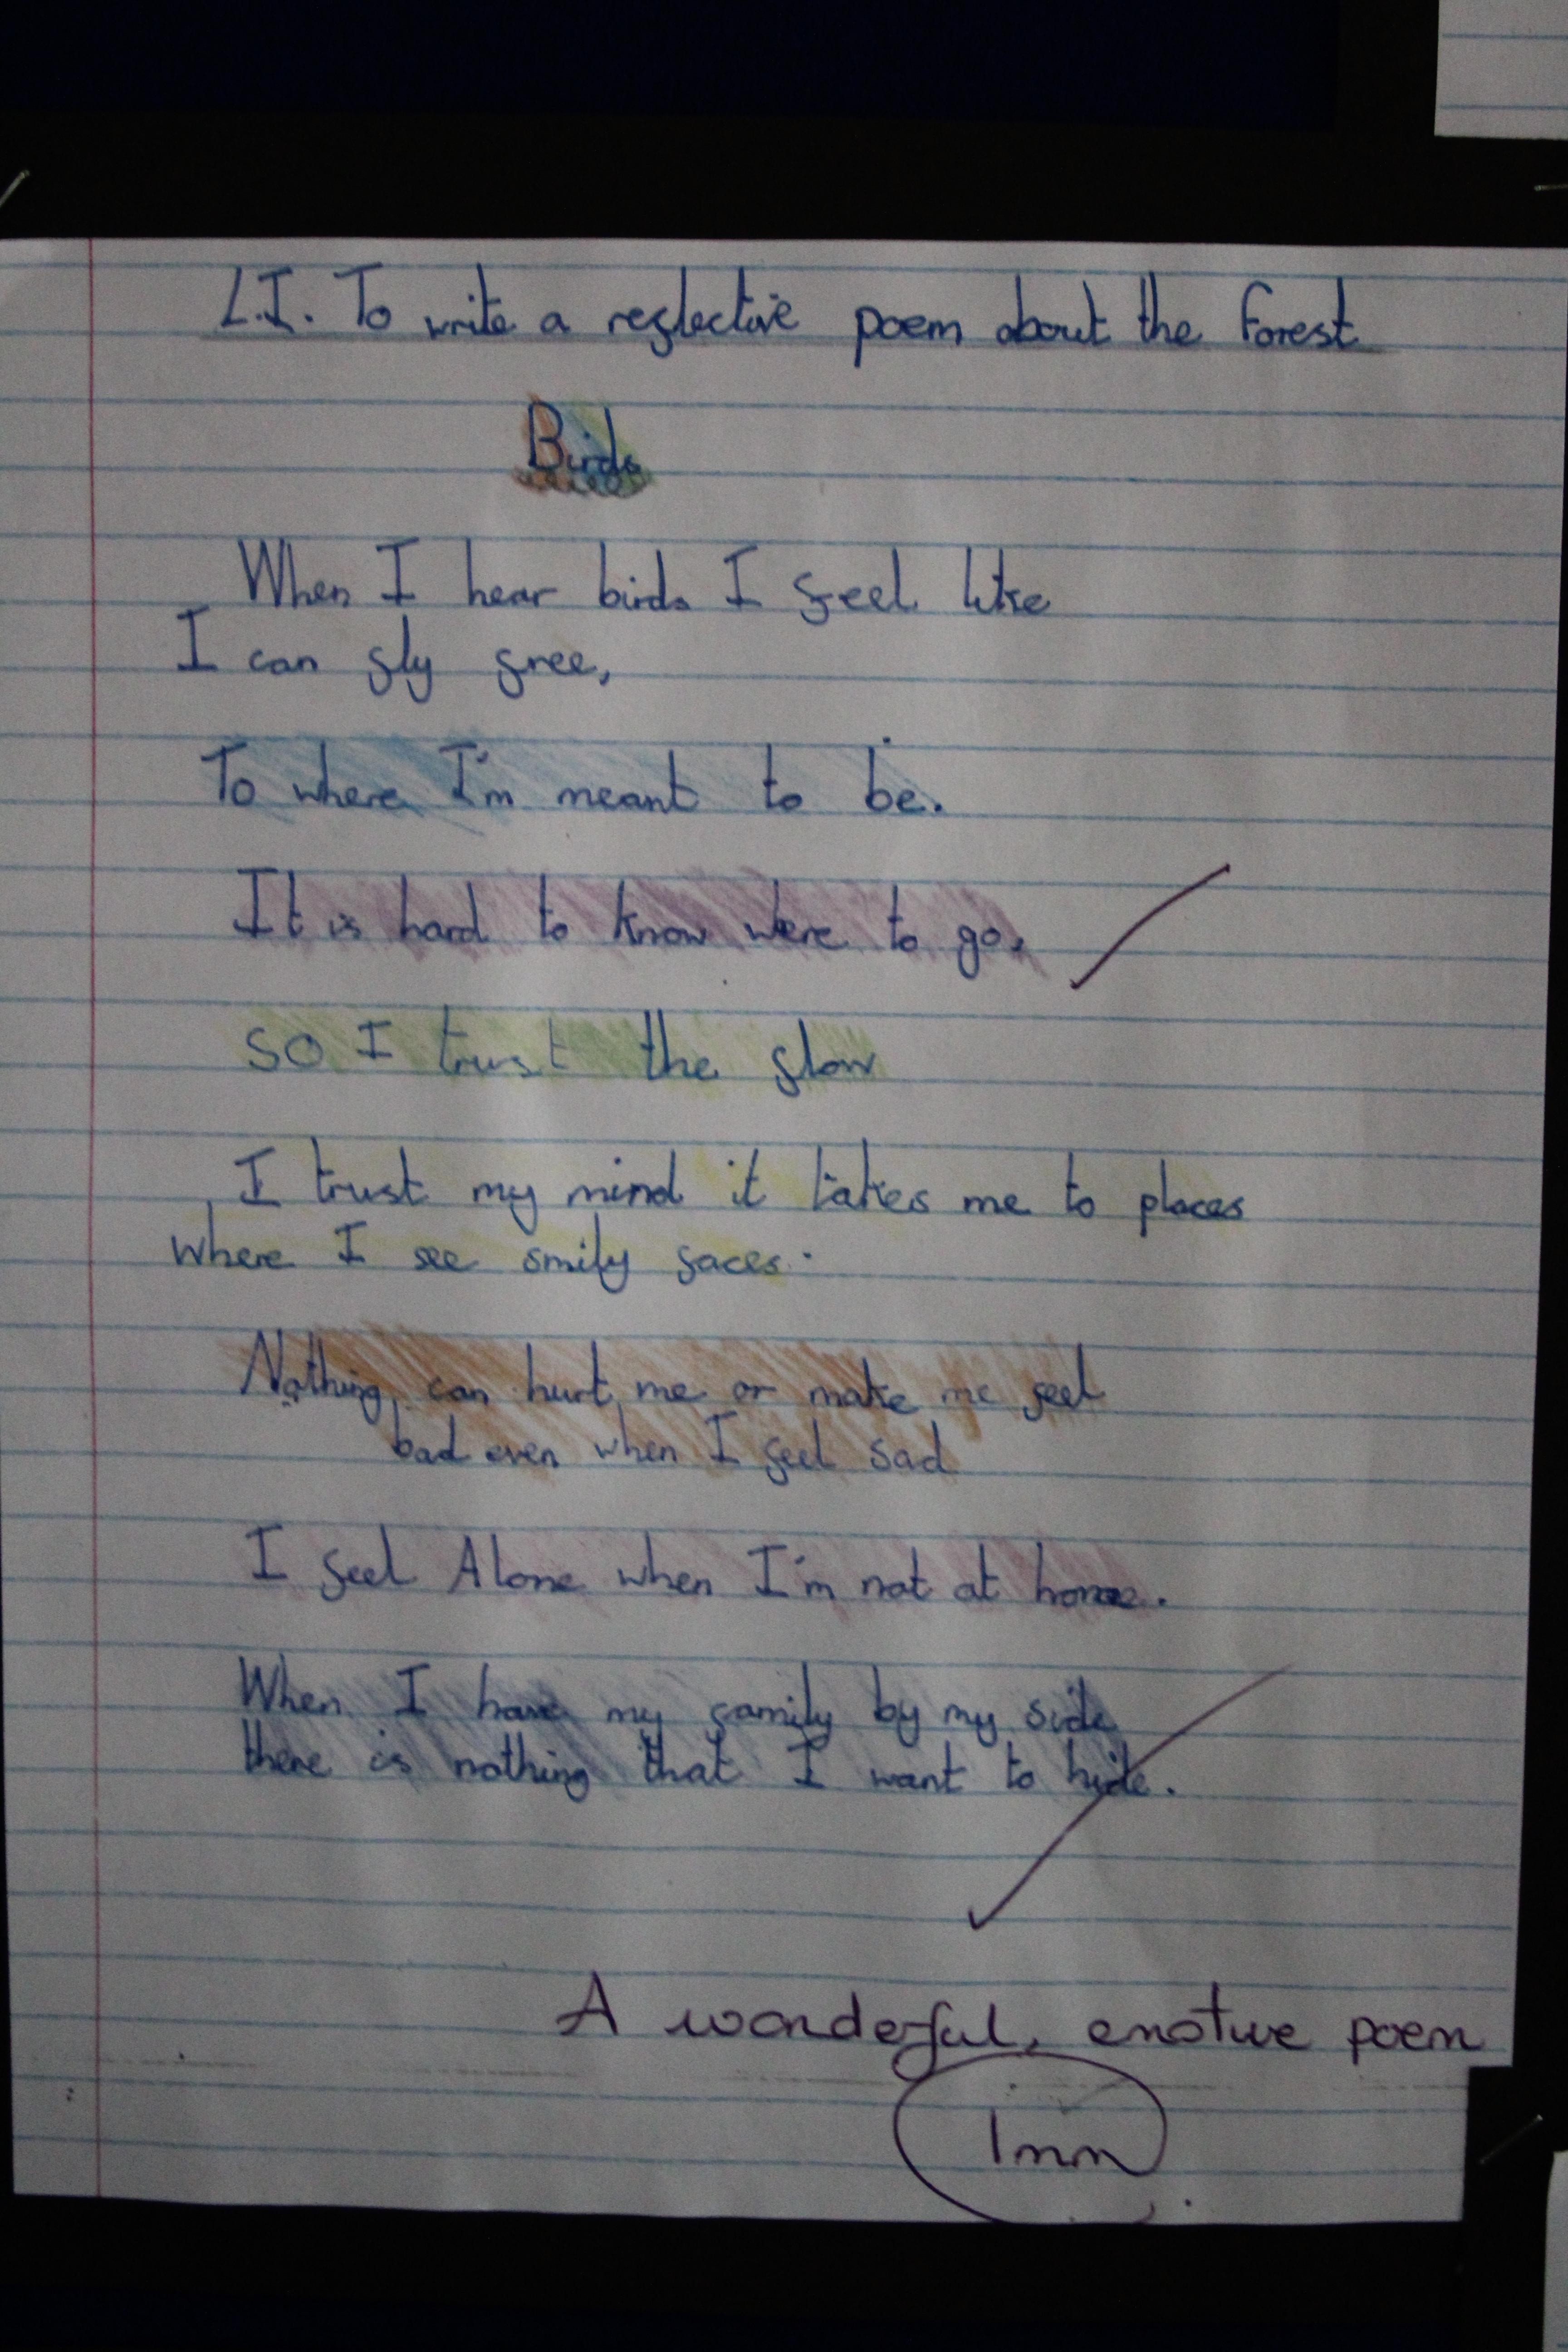 L.I. To write a reflective poem about the forest
Birds
When I hear birds I feel like
I can fly free,
To where I'm meant to be.
It is hard to know were to go,
SO I trust the flow
I trust my mind it takes me to places
where I see smily faces.
Nothing can hurt me or make me feel
bad even when I feel sad
I feel Alone when I'm not at home.
When I have my family by my side
there is nothing that I want to hide.
A wonderful, emotive poem